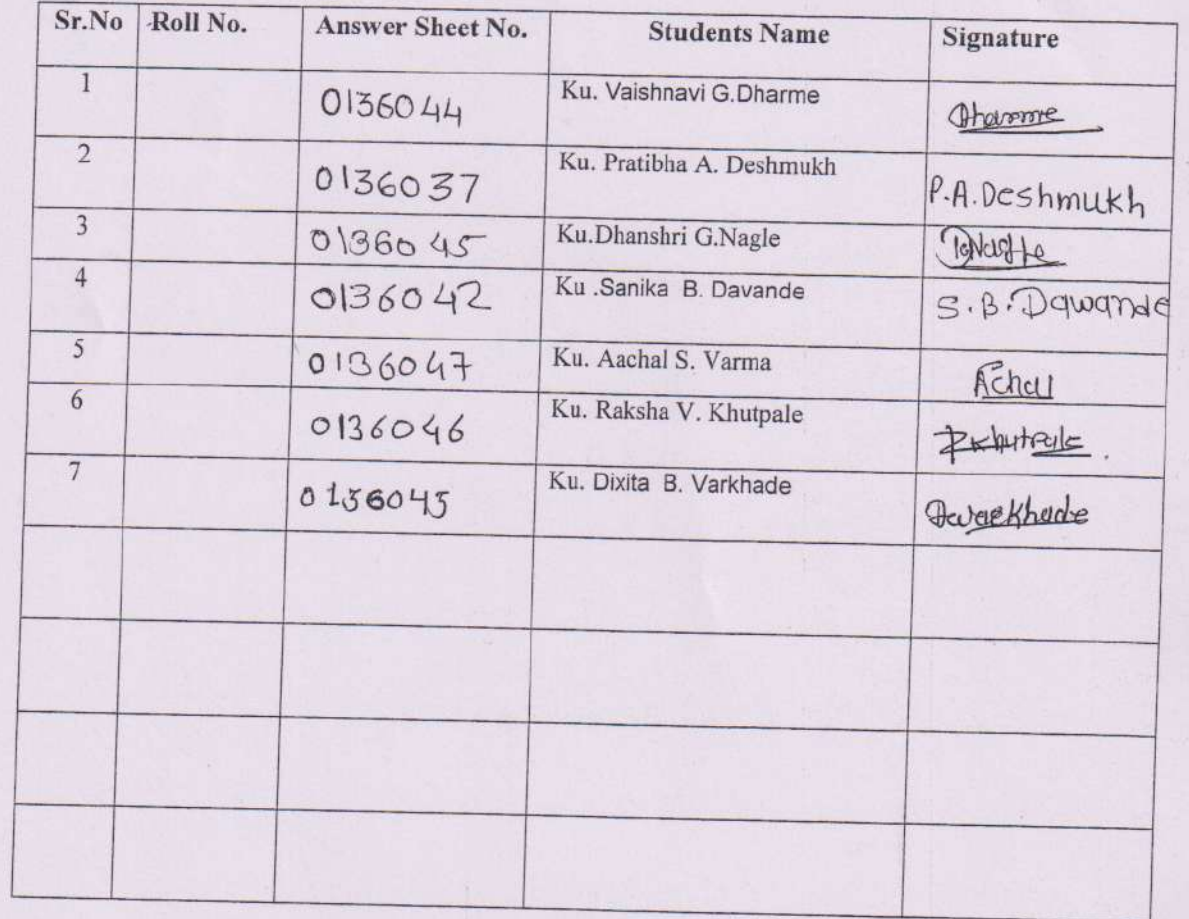 Sr.No Roll No. Answer Sheet No. Students Name Signature
1 0136044 Ku. Vaishnavi G.Dharme Dharme
2 0136037 Ku. Pratibha A. Deshmukh P.A.Deshmukh
3 0136045 Ku.Dhanshri G.Nagle
4 0136042 Ku .Sanika B. Davande S.B.Dawande
5 0136047 Ku. Aachal S. Varma Achal
6 0136046 Ku. Raksha V. Khutpale
7 Ku. Dixita B. Varkhade